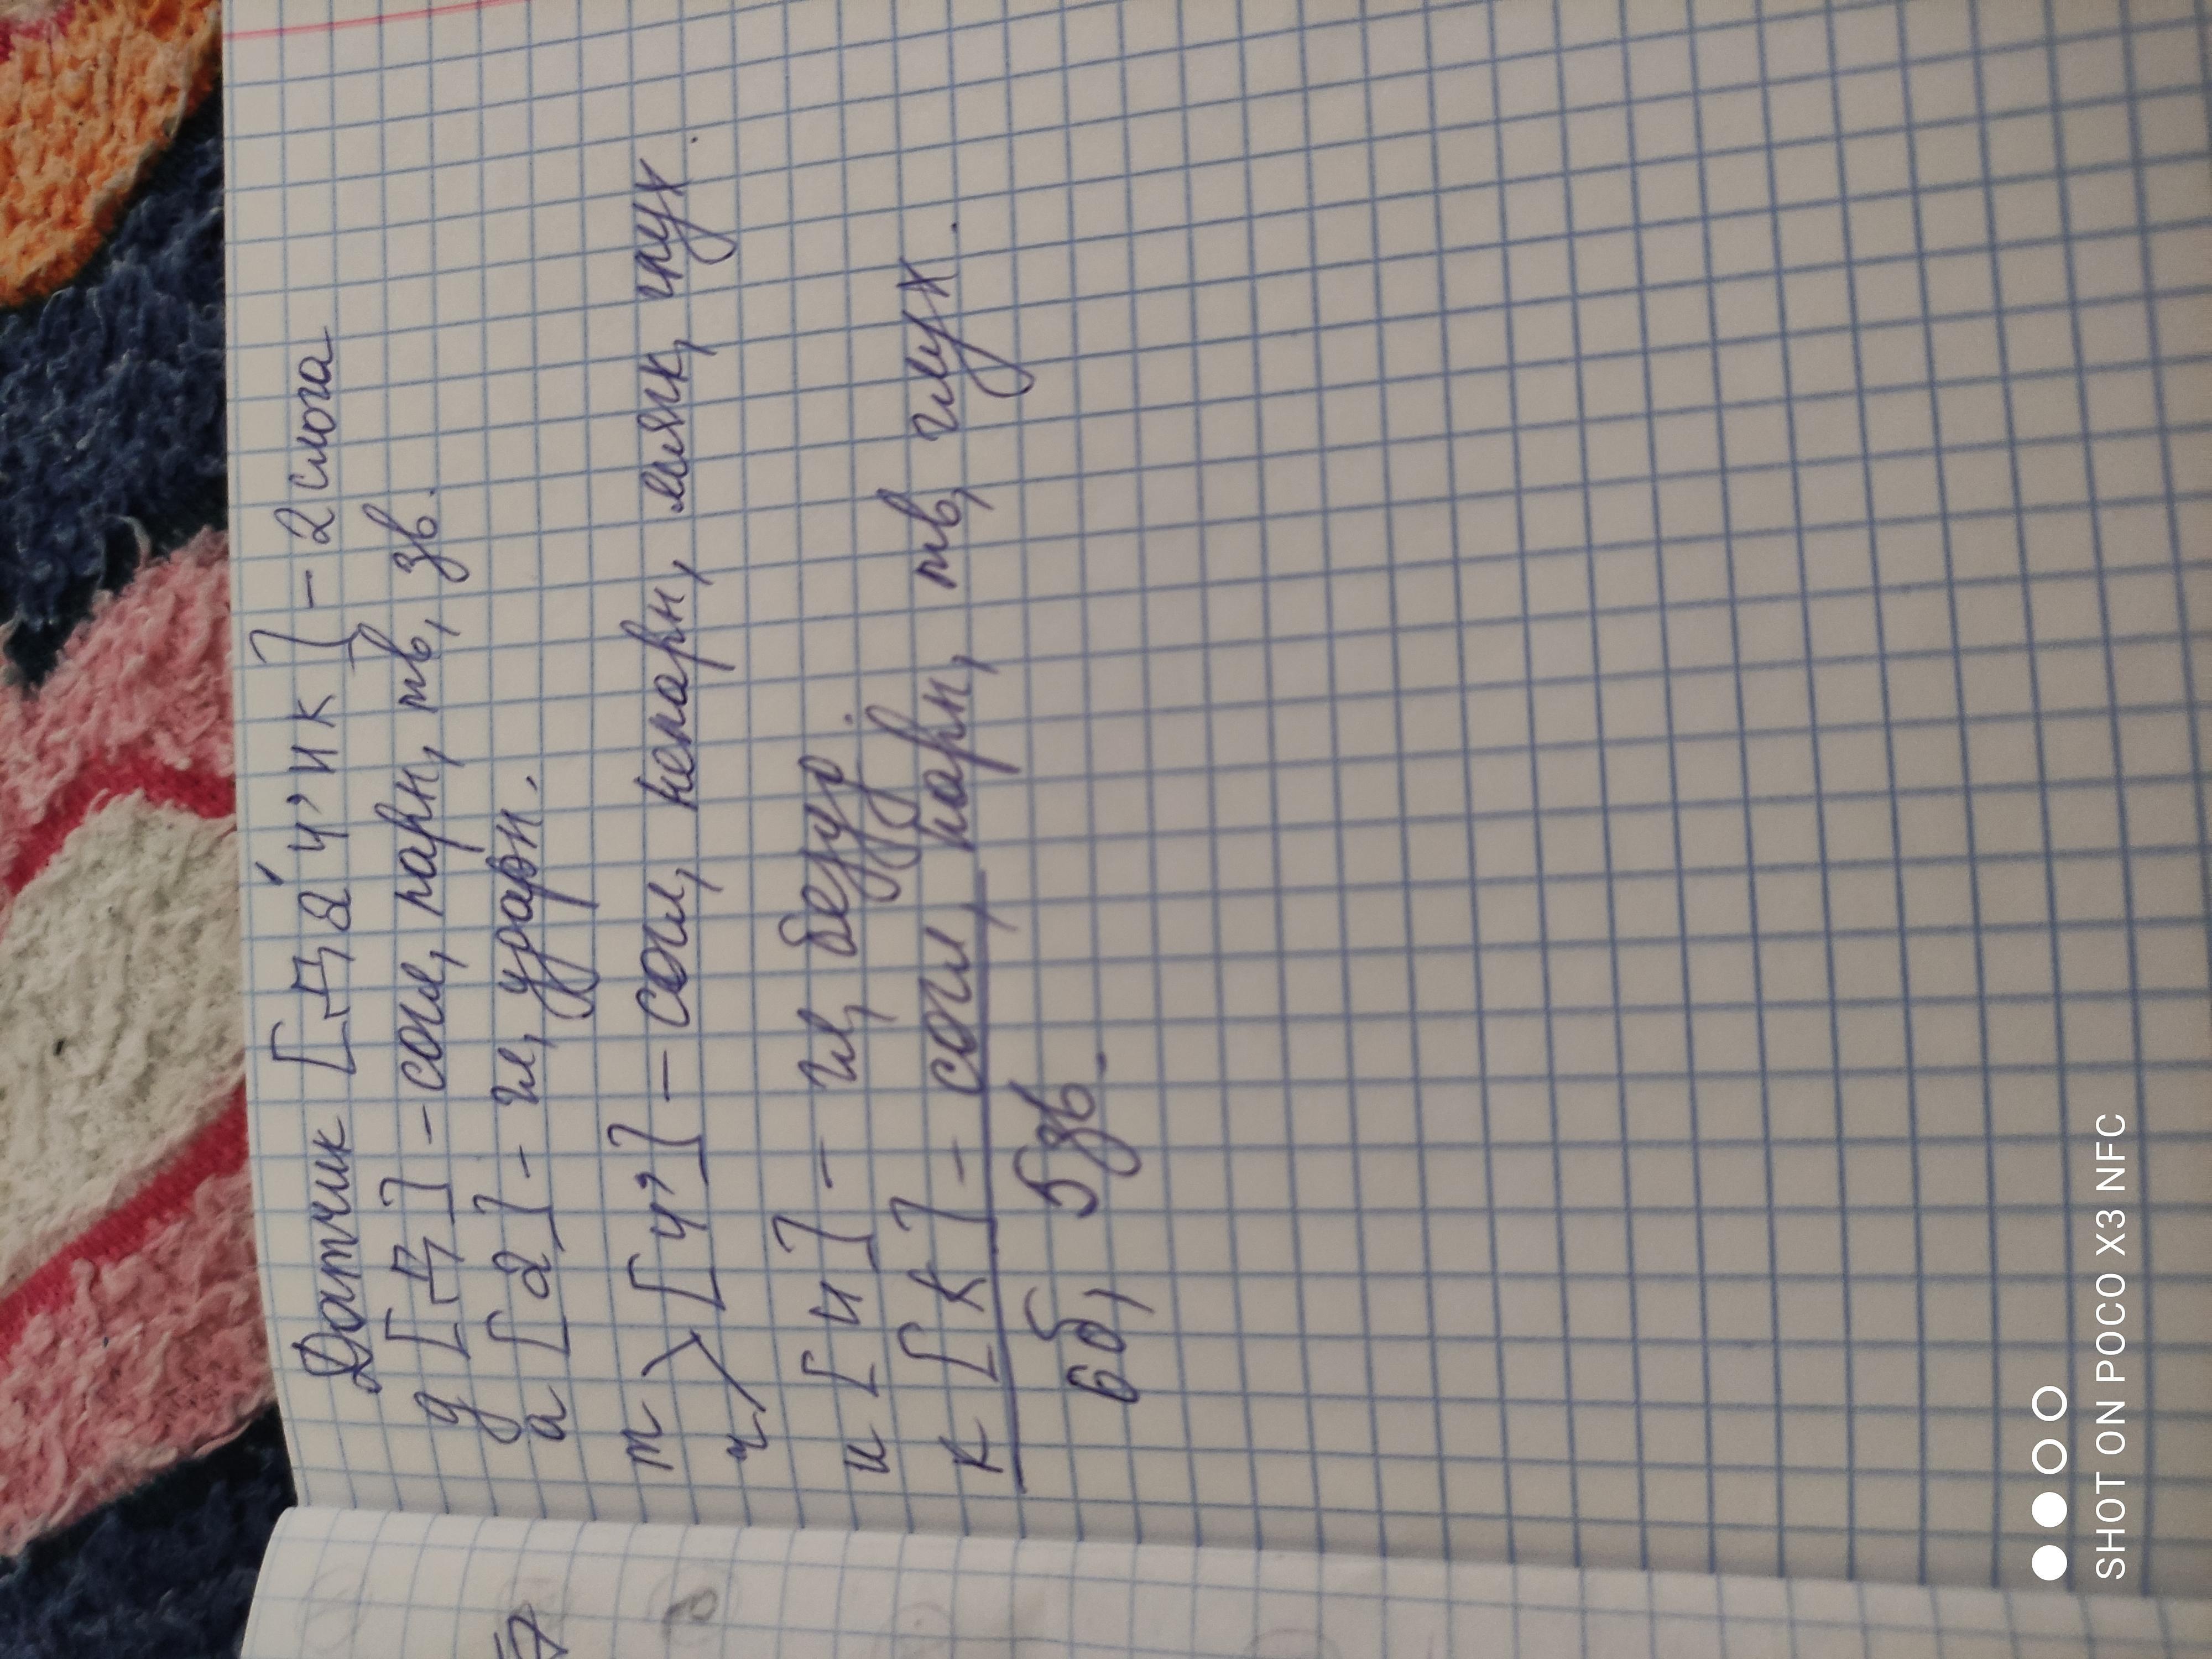 Датчик [да́ч'ик] - 2 слога
д [д] - согл, парн, тв, зв.
а [а] - гл, ударн.
т
ч > [ч'] - согл, непарн, мягк, глух.
и [и] - гл, безуд.
к [к] - согл, парн, тв, глух.
6б, 5зв.
SHOT ON POCO X3 NFC